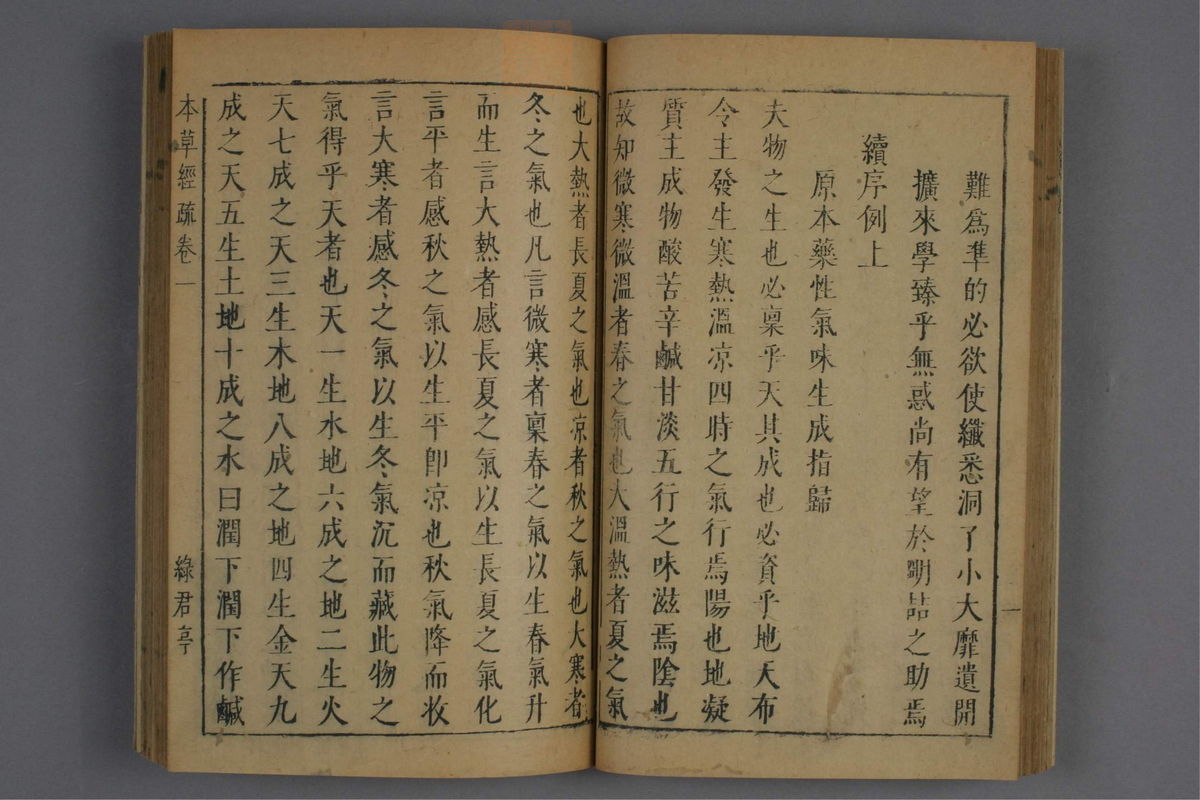 難爲準的必欲使纖悉洞了小大靡遺開
擴來學臻乎無惑尚有望於明喆之助焉
續序例上
原本藥性氣味生成指歸
夫物之生也必稟乎天其成也必資乎地天布
令主發生寒熱溫凉四時之氣行焉陽也地凝
質主成物酸苦辛鹹甘淡五行之味滋焉陰也
故知微寒微溫者春之氣也大溫熱者夏之氣
也大熱者長夏之氣也凉者秋之氣也大寒者
冬之氣也凡言微寒者稟春之氣以生春氣升
而生言大熱者感長夏之氣以生長夏之氣化
言平者感秋之氣以生平卽凉也秋氣降而收
言大寒者感冬之氣以生冬氣沉而藏此物之
氣得乎天者也天一生水地六成之地二生火
天七成之天三生木地八成之地四生金天九
成之天五生土地十成之水曰潤下潤下作鹹
本草經疏卷一
綠君亭